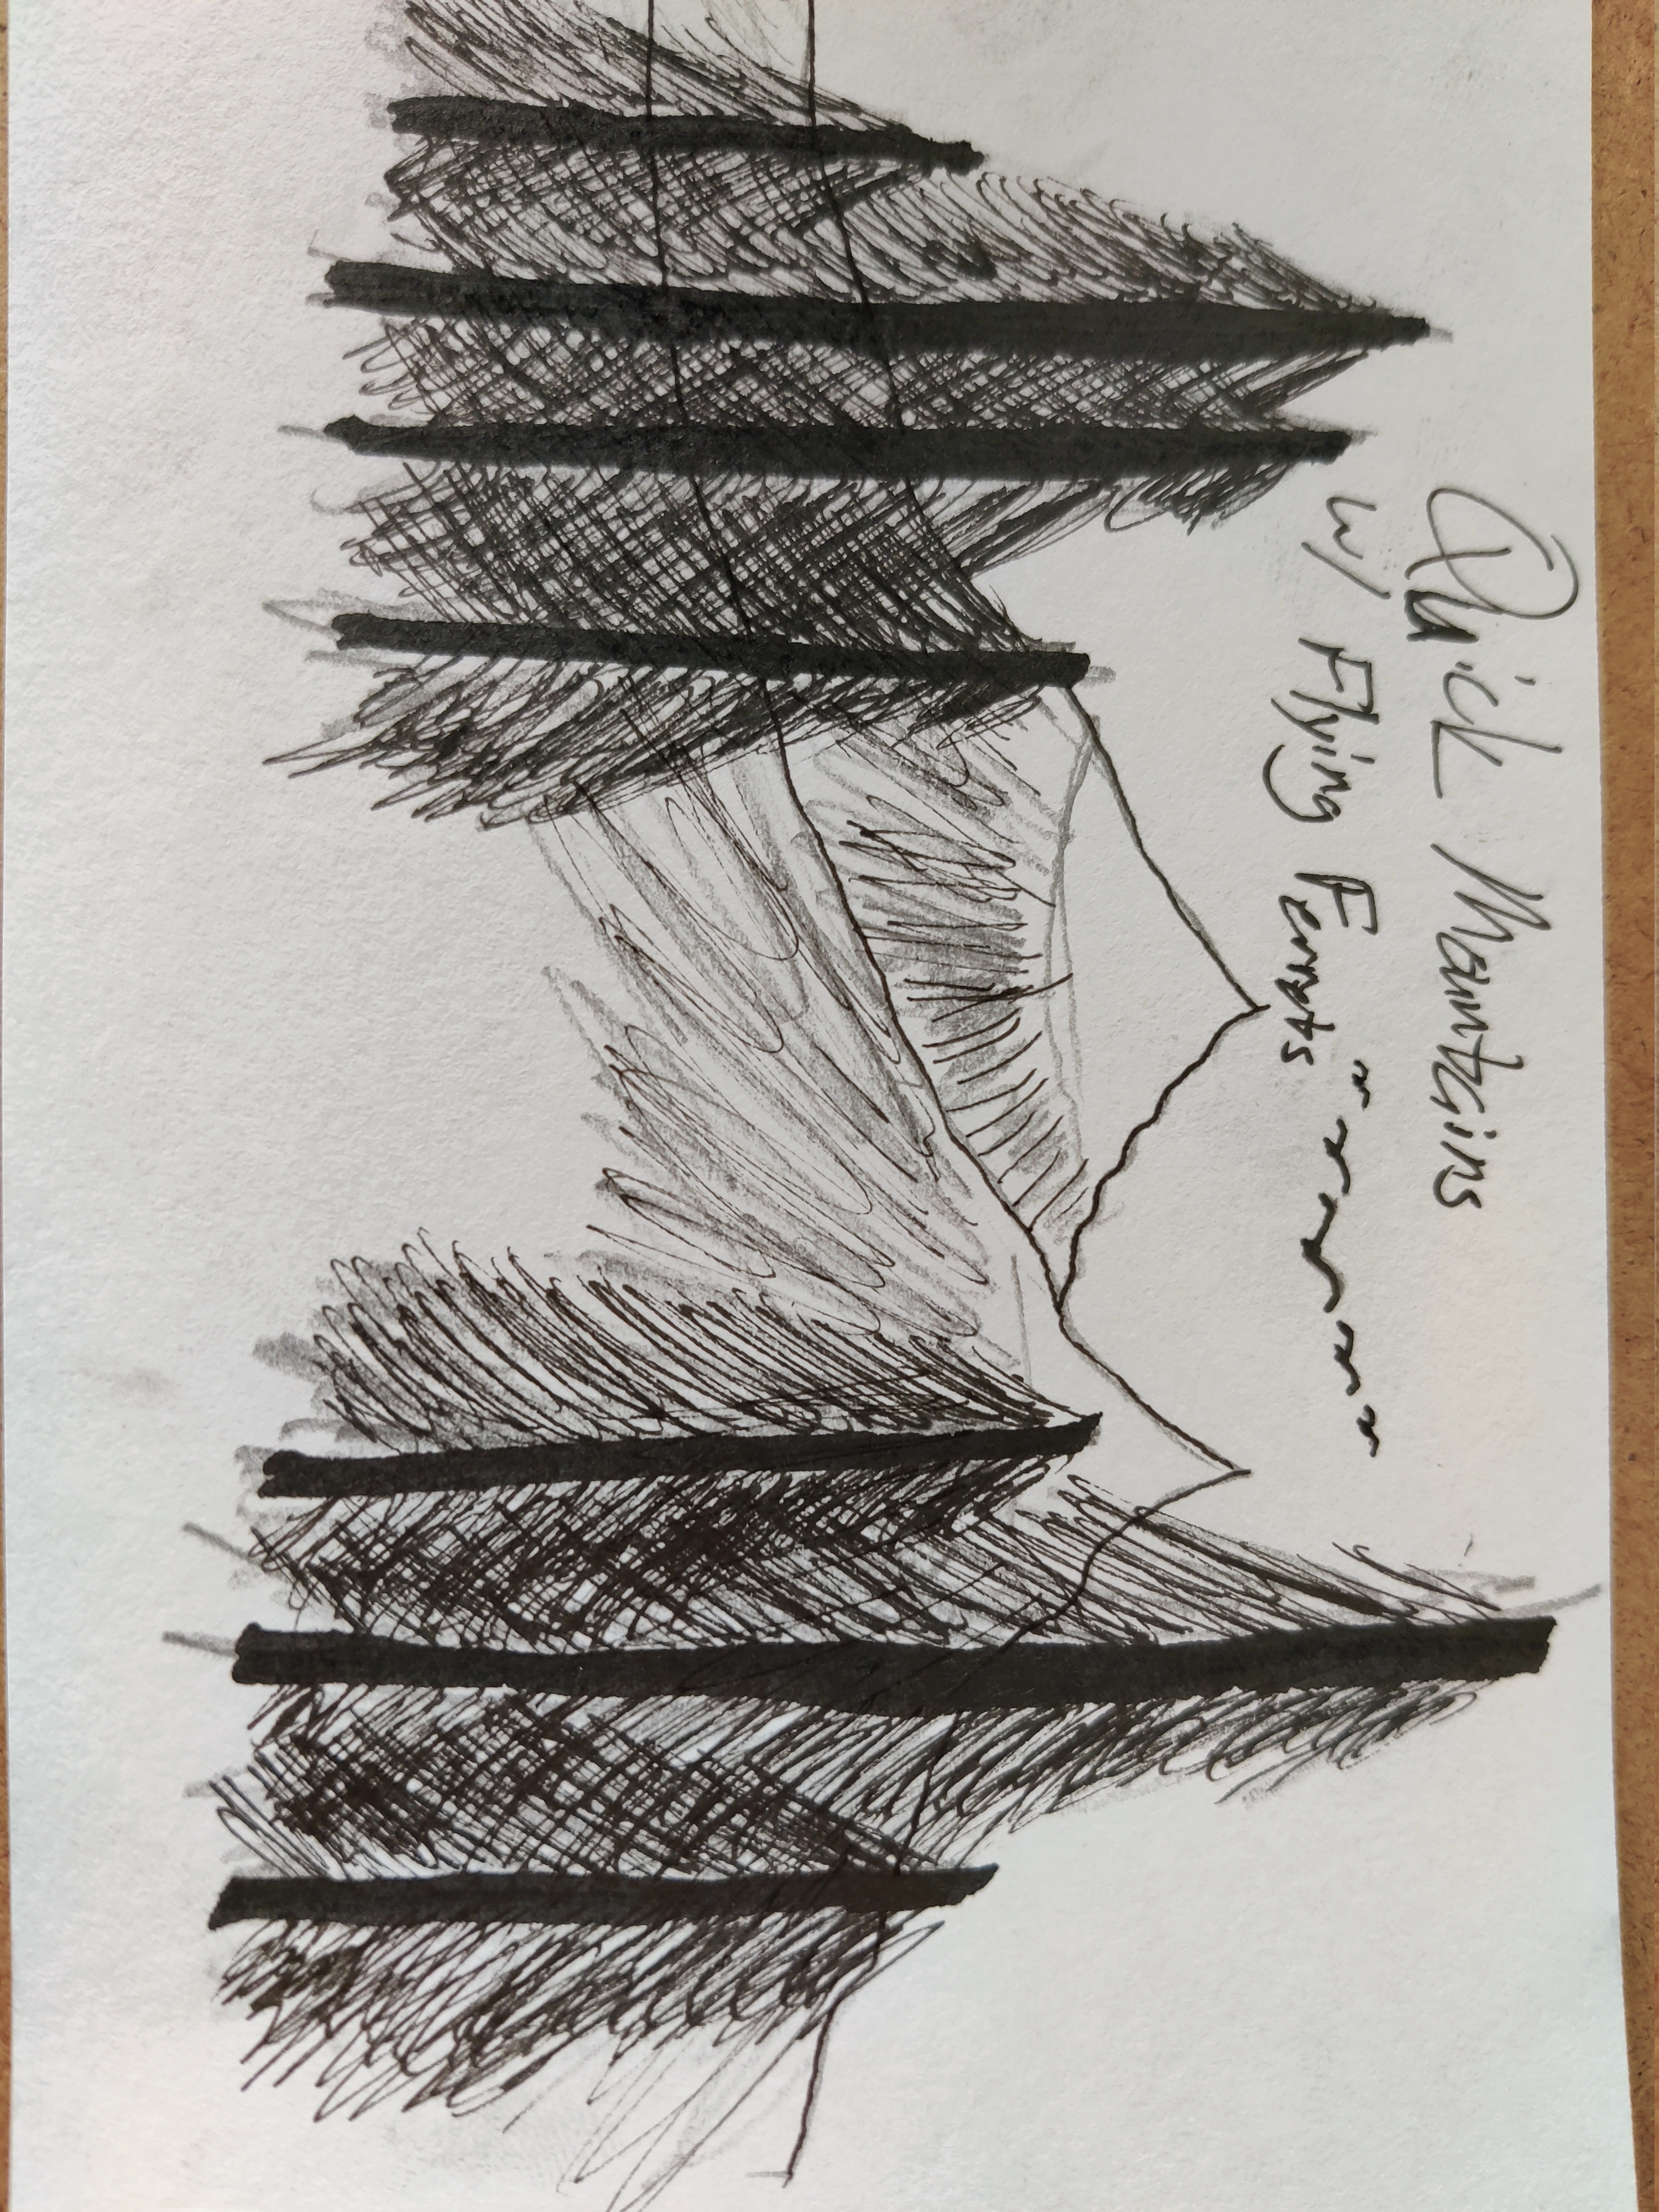 Quick Mountains
w/ Flying Ferrets